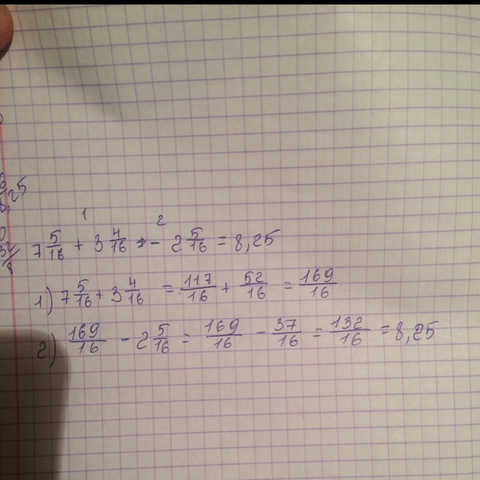 1 2
7 5/16 + 3 4/16 - 2 5/16 = 8,25
1) 7 5/16 + 3 4/16 = 117/16 + 52/16 = 169/16
2) 169/16 - 2 5/16 = 169/16 - 37/16 = 132/16 = 8,25